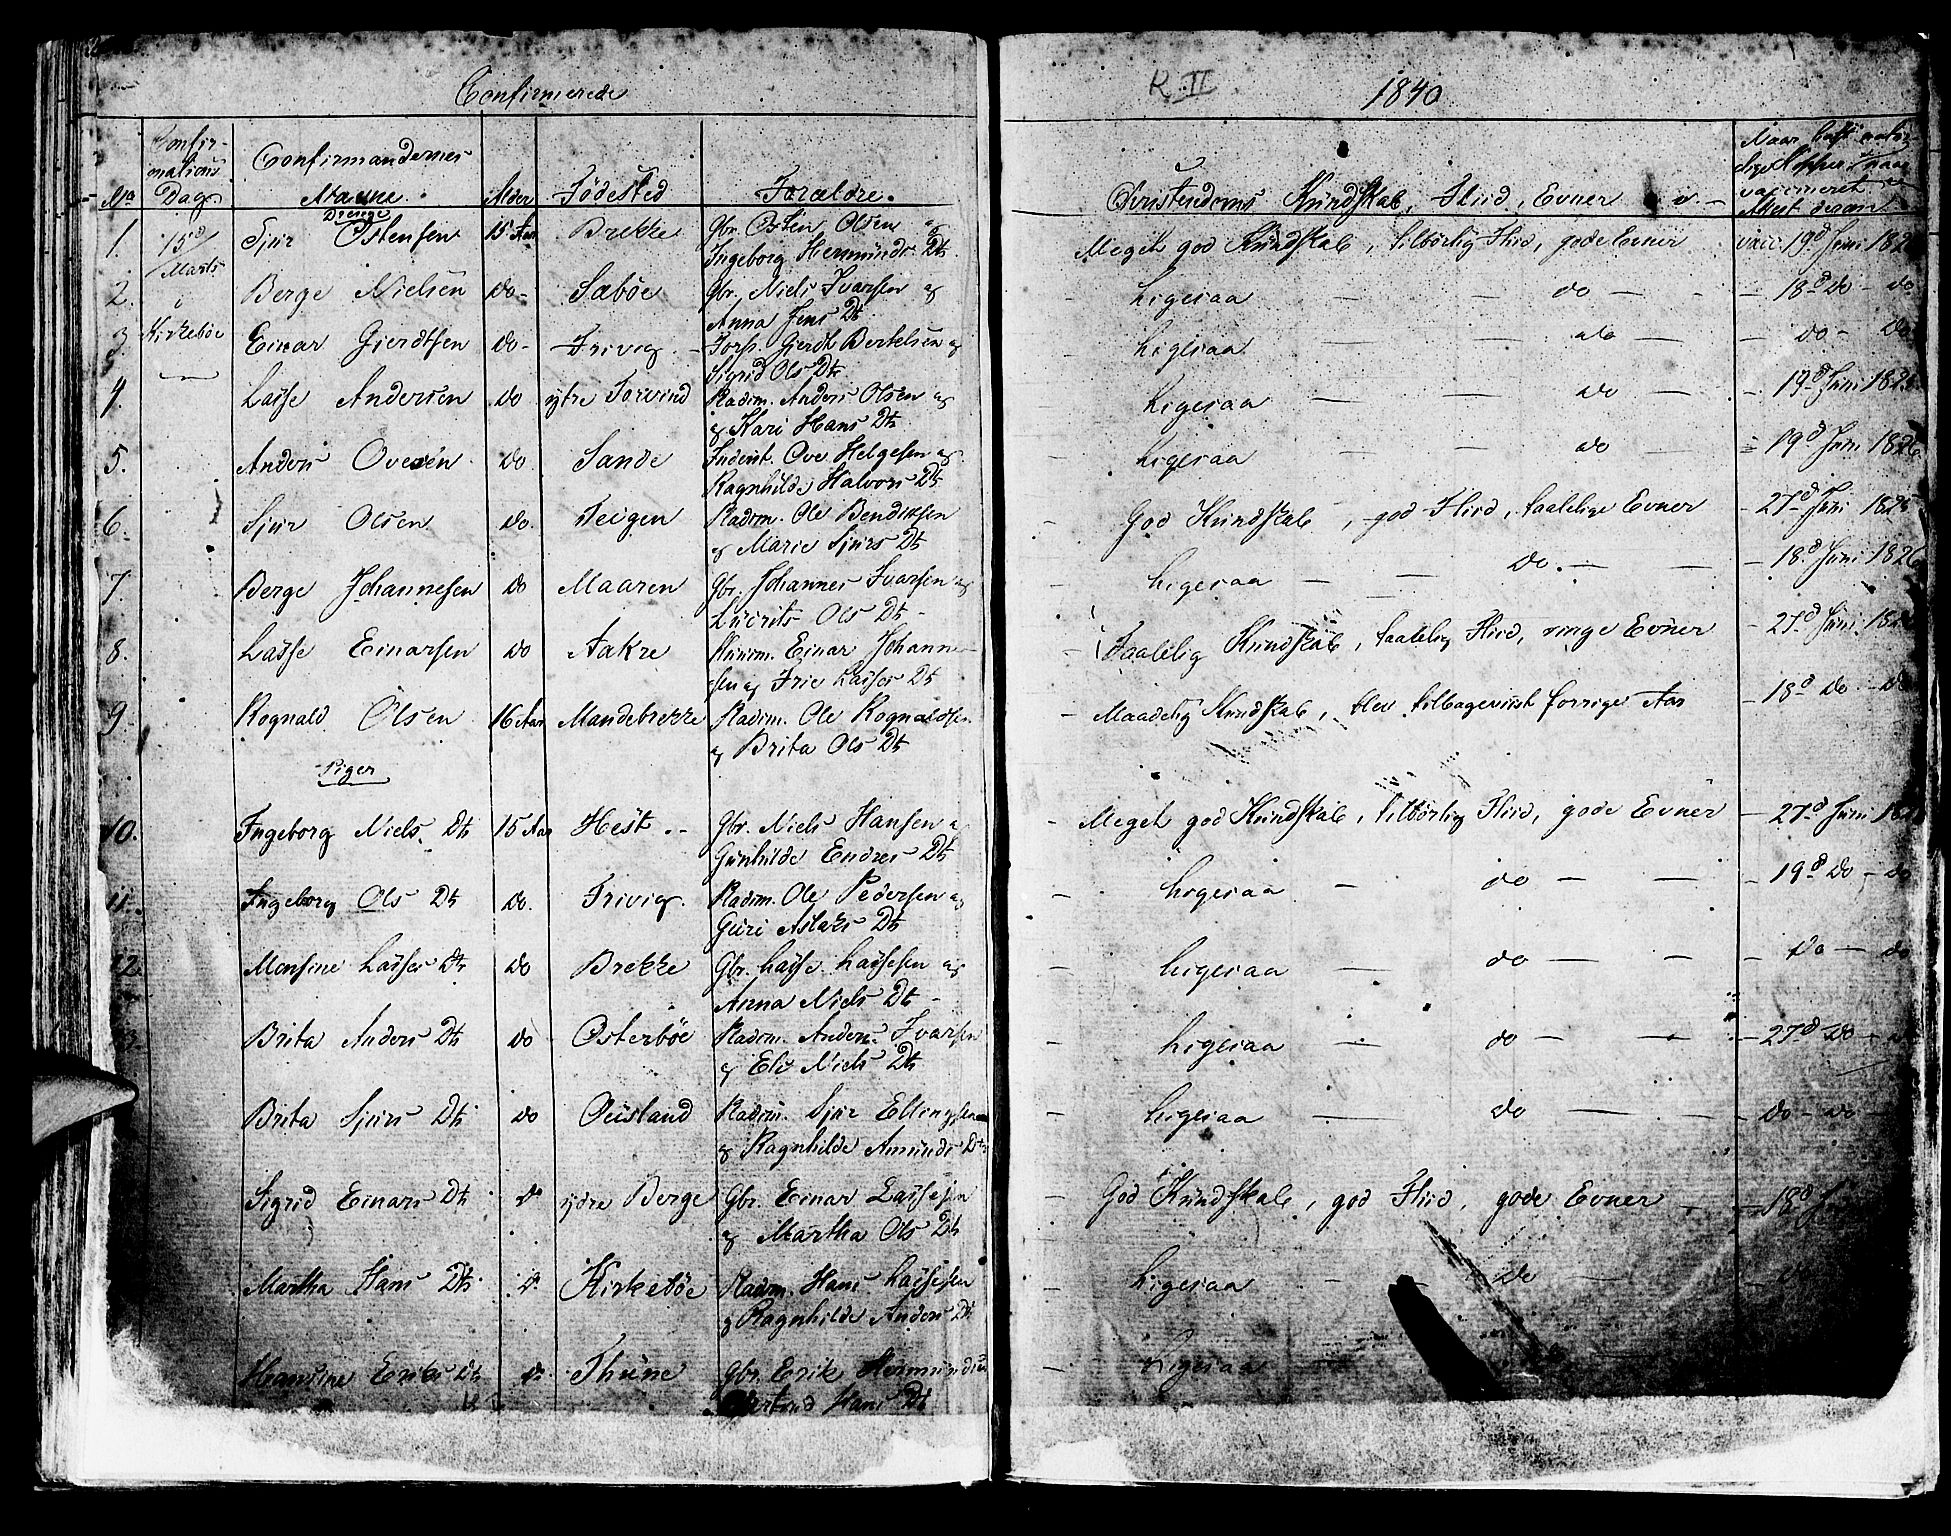 Confirmerede
K. II
1840
No
Confir-
mations
Dag
Confirmandernes
Navne.
Alder
Fødested
Forældre.
Christendoms Kundskab, Fliid, Evner
Naar
vaccineret
Attest derom
Drenge
1. 15d Marts Sjur Ostensen 15 Aar Brekke Gbr. Osten Olsen og
Ingeborg Hermunds Dtr
Meget god Kundskab, tilbørlig Fliid, gode Evner vacc. 19d Juni
2. i Berge Nielsen do Sæbøe Gbr. Niels Ivarsen og
Anna Jens Dtr
Ligesaa — — do — — 18d do — do
3. Kirkebøe Einar Gierdtsen do Trivig Torp. Gierdt Bertelsen og
Sigrid Ols Dtr
Ligesaa — — do — do — do
4. Lasse Andersen do ytre Torvind Kaarm. Anders Olsen og
og Kari Hans Dtr
Ligesaa — — do — 19d Juni
5. Anders Ovesen do Sande Ove Helgesen og
Ragnhilde Halvors Dtr
Ligesaa — — do — 19d Juni 1826
6. Sjur Olsen do. Teigen Ole Bendixsen
og Marie Sjurs Dtr
God Kundskab, god Fliid, taalelige Evner — 27d Juni
7. Berge Johannesen do Maaren Gbr. Johannes Ivarsen og
Ols Dtr
Ligesaa — — do. — — 18d Juni 1826
8. Lasse Einarsen do Aakre Einar Johanne-
sen og Lasses Dtr
Taalelig Kundskab, taalelig Fliid, ringe Evner — 27d Juni
9 Rognald Olsen 16 Aar Mandebrekke Ole Rognaldsen
og Brita Ols Dtr
Maadelig Kundskab, blev tilbageviist forrige Aar — 18d do — do
Piger
10. Ingeborg Niels Dtr 15 Aar Hest Gbr. Niels Hansen og
Gunhilde Endres Dtr
Meget god Kundskab, tilbørlig Fliid, gode Evner — 27d Juni
11. Ingeborg Ols Dtr do. Trivig Ole Pedersen og
Guri Aslaks Dtr
Ligesaa — do — — 19d do — do
12. Monsine Lasses Dtr do Brekke Gbr. Lasse Lassesen og
Anna Niels Dtr
Ligesaa — do — — do — do
13. Brita Anders Dtr do Osterbøe Anders Ivarsen
og Eli Niels Dtr
Ligesaa — do — — 27d do
Brita Sjurs Dtr do Ousland Sjur Ellingsen
og Ragnhilde Amunds Dtr
Ligesaa — do — — do — do
Sigrid Einars Dtr do ydre Berge Gbr. Einar Lassesen
og Martha Ols Dtr
God Kundskab, god Fliid, gode Evner — 18d
Martha Hans Dtr do Kirkebøe Hans Lassesen
og Ragnhilde Anders Dtr
Ligesaa — do —
Hansine Eriks Dtr do Thune Gbr. Erik Hermundsen
Hans Dtr
Ligesaa